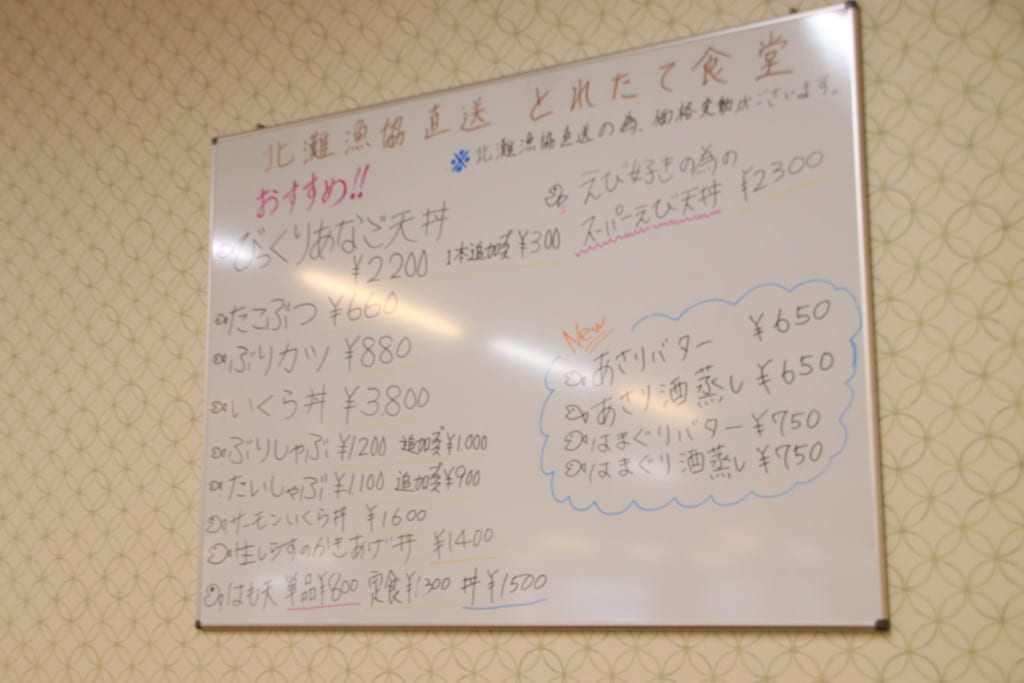 北灘漁協直送 とれたて食堂
※北灘漁協直送の為、価格変動がございます。
おすすめ!!
びっくりあなご天丼
¥2200 1本追加¥300
えび好きの為の
スーパーえび天丼 ¥2300
たこぶつ ¥660
ぶりカツ ¥880
いくら丼 ¥3.800
ぶりしゃぶ ¥1200 追加¥1.000
たいしゃぶ ¥1.100 追加¥900
サーモンいくら丼 ¥1600
生しらすのかきあげ丼 ¥1400
はも天 単品¥800 定食¥1300 丼¥1500
New
あさりバター ¥650
あさり酒蒸し ¥650
はまぐりバター ¥750
はまぐり酒蒸し ¥750